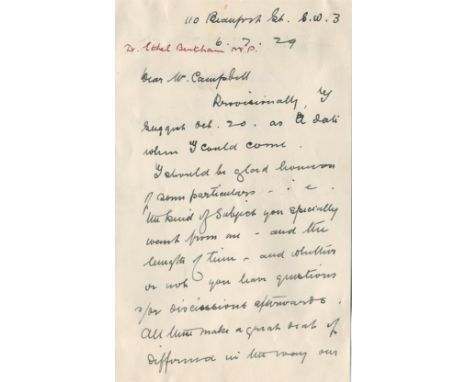 110 Beaufort St. S.W. 3
6. 7. 29
Dr. Ethel Bentham M.P.
Dear Mr. Campbell
Provisionally, I
suggest Oct. 20. as a date
when I could come.
I should be glad however
of some particulars - i.e.
the kind of subject you specially
want from me - and the
length of time - and whether
or not you have questions
&/or discussions afterwards.
All these make a great deal of
difference in the way one